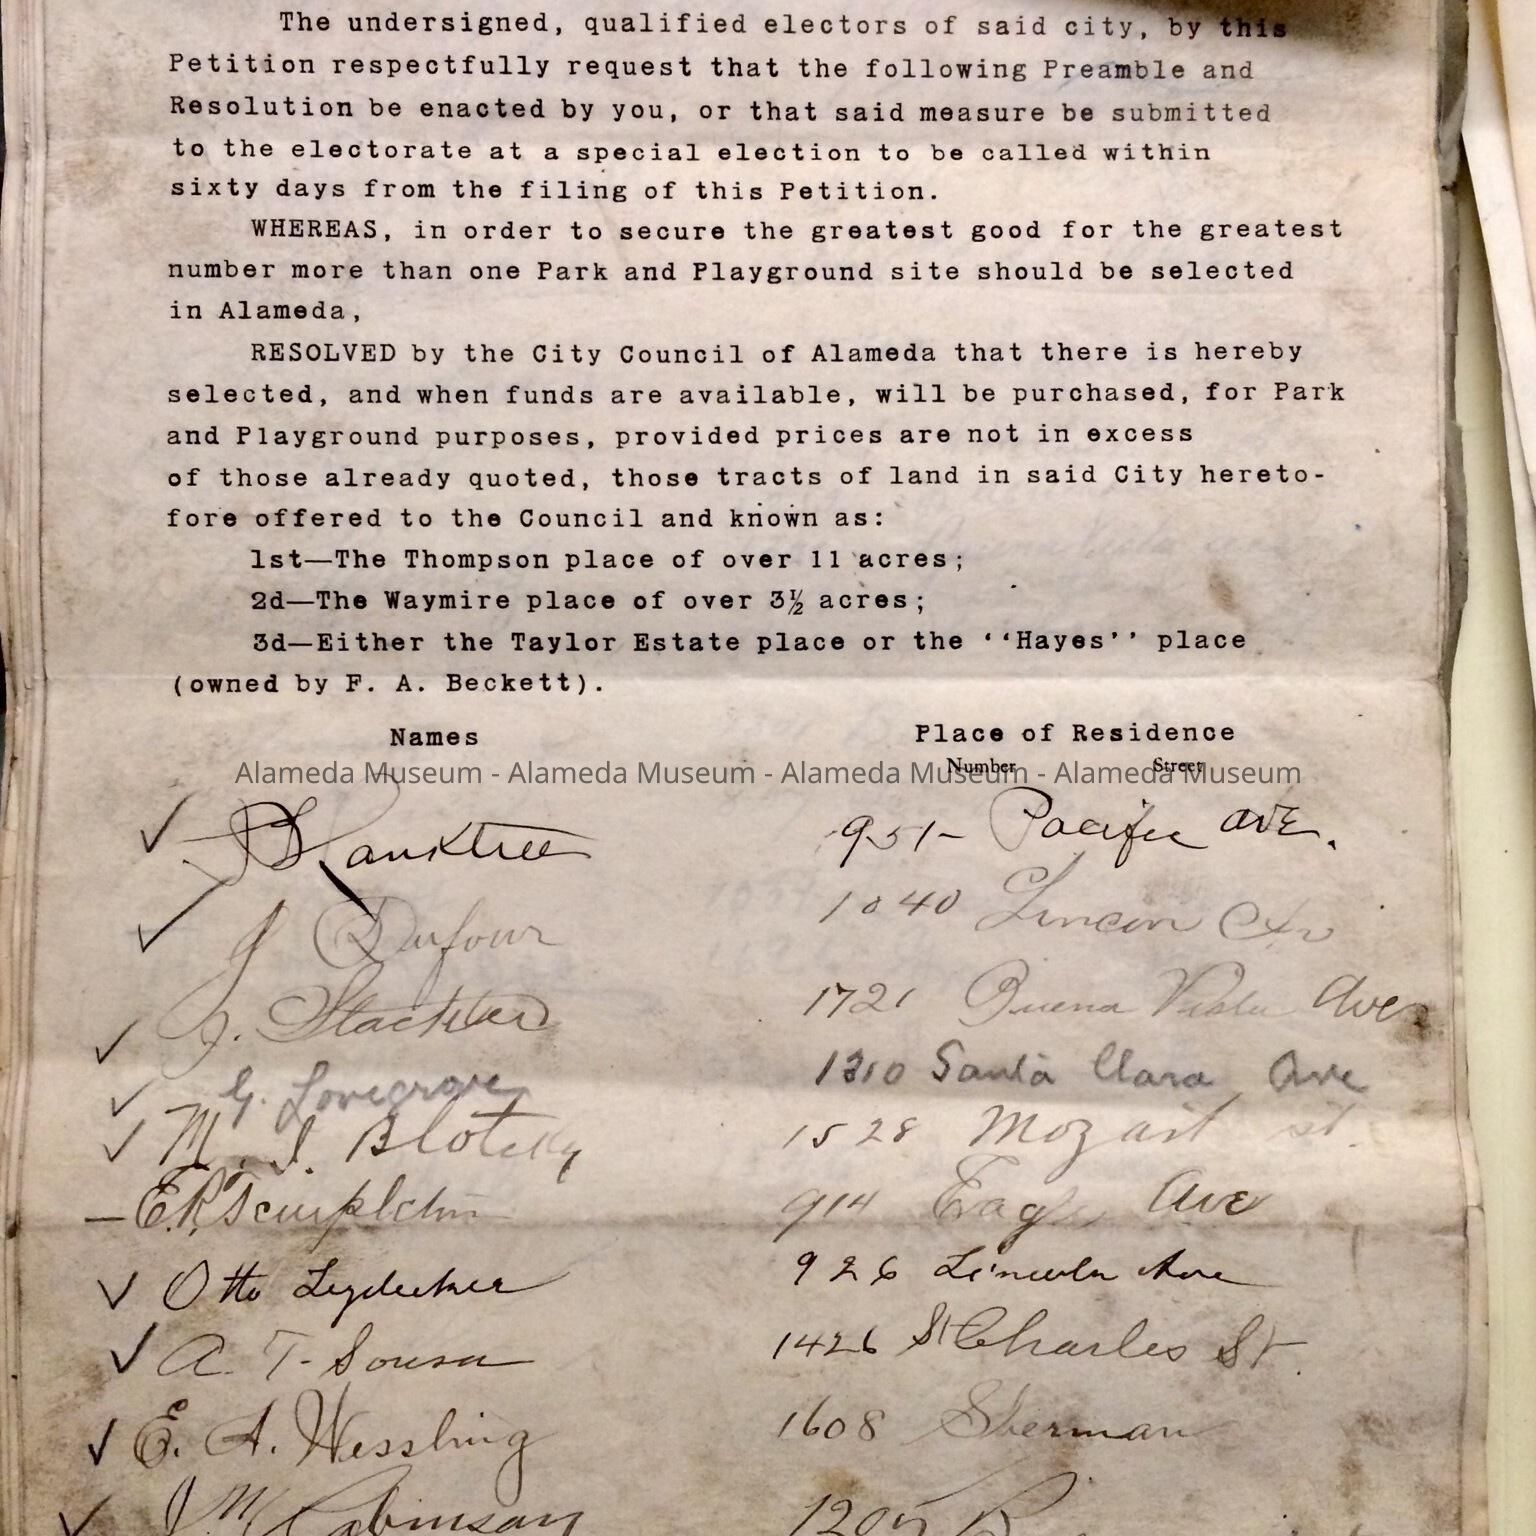 The undersigned, qualified electors of said city, by this
Petition respectfully request that the following Preamble and
Resolution be enacted by you, or that said measure be submitted
to the electorate at a special election to be called within
sixty days from the filing of this Petition.
WHEREAS, in order to secure the greatest good for the greatest
number more than one Park and Playground site should be selected
in Alameda,
RESOLVED by the City Council of Alameda that there is hereby
selected, and when funds are available, will be purchased, for Park
and Playground purposes, provided prices are not in excess
of those already quoted, those tracts of land in said City hereto-
fore offered to the Council and known as:
1st—The Thompson place of over 11 acres;
2d—The Waymire place of over 3½ acres;
3d—Either the Taylor Estate place or the ‘‘Hayes’’ place
(owned by F. A. Beckett).
Names Place of Residence
Number Street
Alameda Museum - Alameda Museum - Alameda Museum - Alameda Museum
951 Pacific Ave.
J Dufour 1040 Av
J. 1721 Buena Vista Ave
G. Lovegrove 1310 Santa Clara Ave
M. J. 1528 Mozart st.
E.R. Templeton 914 Eagle Ave
Otto Lydecker 926 Lincoln Ave
A. T. Sousa 1426 St Charles St.
E. A. Wessling 1608 Sherman
J M Robinson 1205